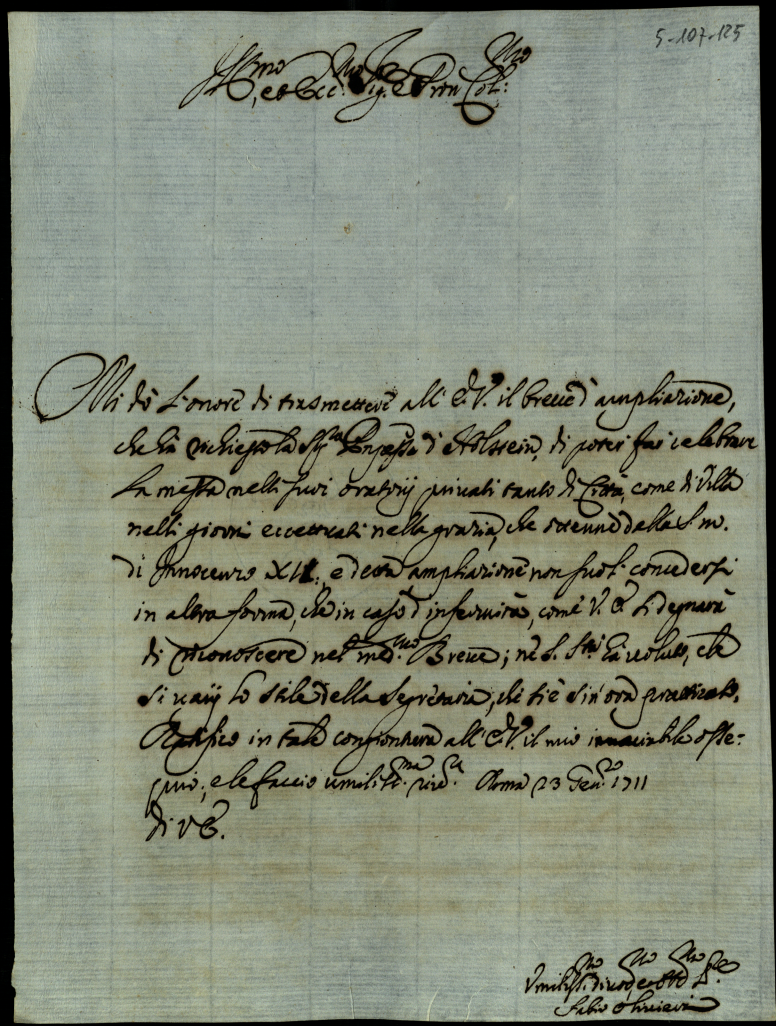 5-107-125
Ill.mo et Ecc.mo Sig.re e Pron Col.mo
Mi dò l'onore di trasmettere all' E.V. il breve d' ampliazione,
che hà richiesto la Sig.ra Pnpessa d' Holstein, di poter far celebrare
la messa nelli suoi oratorij privati tanto di Città, come di Villa
nelli giorni eccettuati nella grazia, che ottenne dalla S. m.
di Innocenzo XII., e detta ampliazione non suol' concedersi
in altra forma, che in caso d' infermità, come V. E. si degnarà
di riconoscere nel med.mo Breve; nè S. S.tà hà voluto, che
si varij lo stile della Segretaria, che si è sin' ora pratticato.
Ratifico in tale congiontura all' E.V. il mio invariabile osse-
quio, e le faccio umiliss.ma riv.a Roma 23 Gen.ro 1711
Di V.E.
Vmiliss.mo divot.mo et obb.mo S.re
Fabio Olivieri